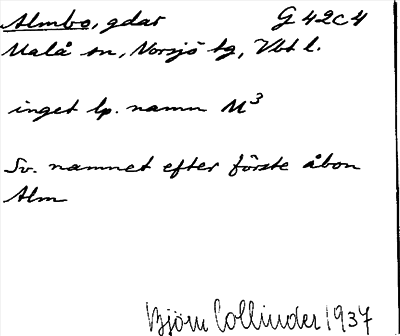 Almbo, gdar G 42C4
Malå sn, Norsjö tg, Vbt l.
inget lp. namn M³
Sv. namnet efter förste åbon
Alm
Björn Collinder 1937